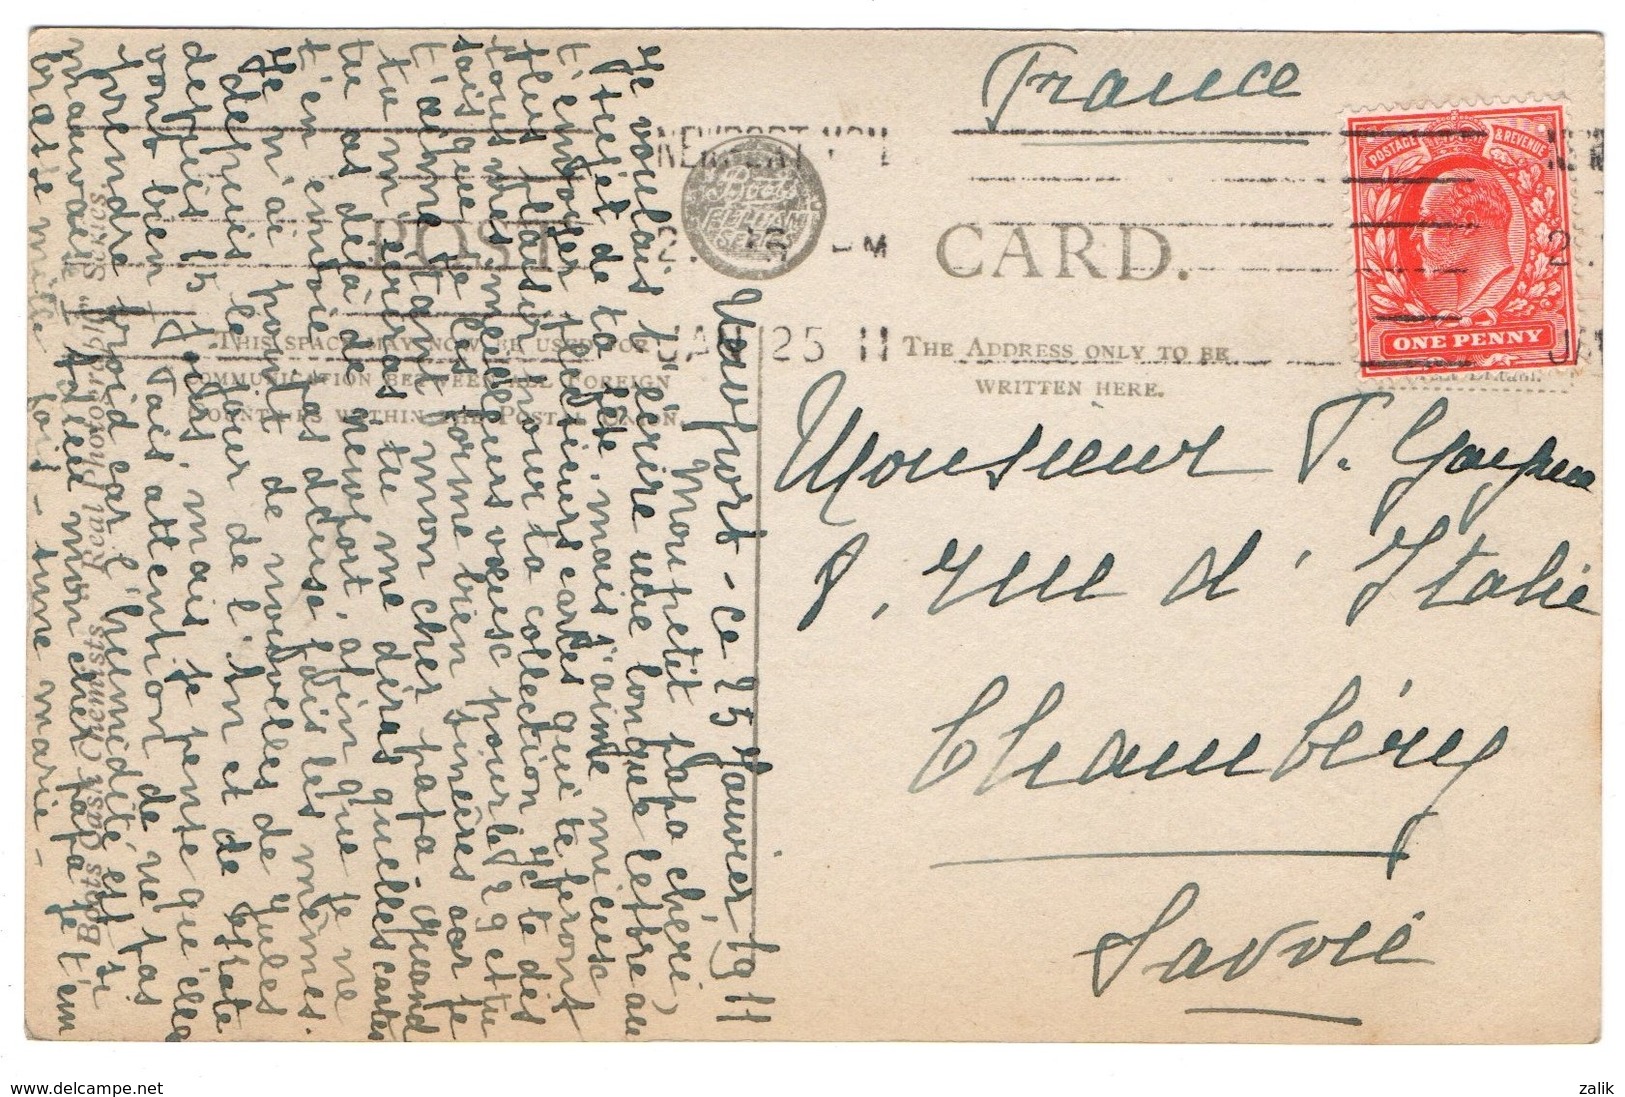 France
POSTAGE & REVENUE
ONE PENNY
NEWPORT MON
2. 
JAN 25 11
Boots
PELHAM
SERIES
POST CARD.
THIS SPACE MAY NOW BE USED FOR
COMMUNICATION BETWEEN ALL FOREIGN
COUNTRIES WITHIN THE POSTAL UNION.
THE ADDRESS ONLY TO BE
WRITTEN HERE.
Monsieur
8, rue d'Italie
Chambéry
Savoie
Boots Cash Chemists "Real Photograph" Series
Newport - ce 25 Janvier 1911
Mon petit papa chéri,
Je voulais t'écrire une longue lettre au
sujet de ta fête, mais j'aime mieux
t'envoyer plusieurs cartes qui te feront
plus plaisir pour ta collection. Je te dis
tous mes meilleurs vœux pour le 29 et tu
sais que je les forme bien sincères car je
t'aime tant mon cher papa. Quand
tu m'écriras tu me diras quelles cartes
tu as déjà de Newport, afin que je ne
t'en envoie pas deux fois les mêmes.
Je n'ai point de nouvelles de Jules
depuis le jour de l'An et de
depuis 15 jours, mais je pense qu'elles
vont bien. Fais attention de ne pas
prendre froid car l'humidité est si
mauvaise. Adieu mon cher papa je t'em
brasse mille fois -